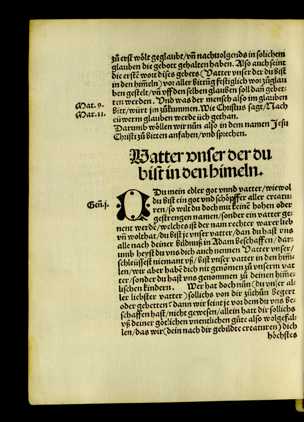 zů erst wölt geglaubt/ vñ nachuolgends in solichem
glauben die gebott gehalten haben. Also auch seint
die erste wort dises gebets (Vatter vnser der du bist
in den himeln) vor aller bittung festiglich vor zů glau
ben gestelt/ vñ vff den selben glauben soll dañ gebet
ten werden. Vnd was der mensch also im glauben
Mat. 9.
Bitt/ würt jm zůkummen. Wie Christus sagt/ Nach
Mat. 11.
eüwerm glauben werde üch gethan.
Darumb wöllen wir nůn also in dem namen Jesu
Christi zů bitten anfahen/ vnd sprechen.
Vatter vnser der du
bist in den himeln.
O Du mein edler got vnnd vatter/ wiewol
du bist ein got vnd schöpffer aller creatu
Gen. j.
ren/ so wilt du doch mit keine hohen oder
gestrengen namen/ sonder ein vatter ge
nent werde/ welchs ist der nam rechter warer lieb
vñ wolthat/ du bist je vnser vatter/ dan du hast vns
alle nach deiner bildnüß in Adam beschaffen/ dar-
umb heyst du vns dich auch nennen Vatter vnser/
schleüssest niemant vß/ bist vnser vatter in den himē
len/ wir aber habē dich nit genomen zů vnserm vat
ter/ sonder du hast vns genomen zů deinen himē
lischen kindern. Wer hat doch nůn (du vnser al
ler liebster vatter) sollichs von dir zůthůn begert
oder gebetten? dann wir seint je von dem du vns be
schaffen hast/ nicht gewesen/ allein hatt dir sollichs
vß deiner götlichen vnentlichen güte also wolgefal
len/ das wir (dein nach dir gebildet creaturen) dich
höchstes